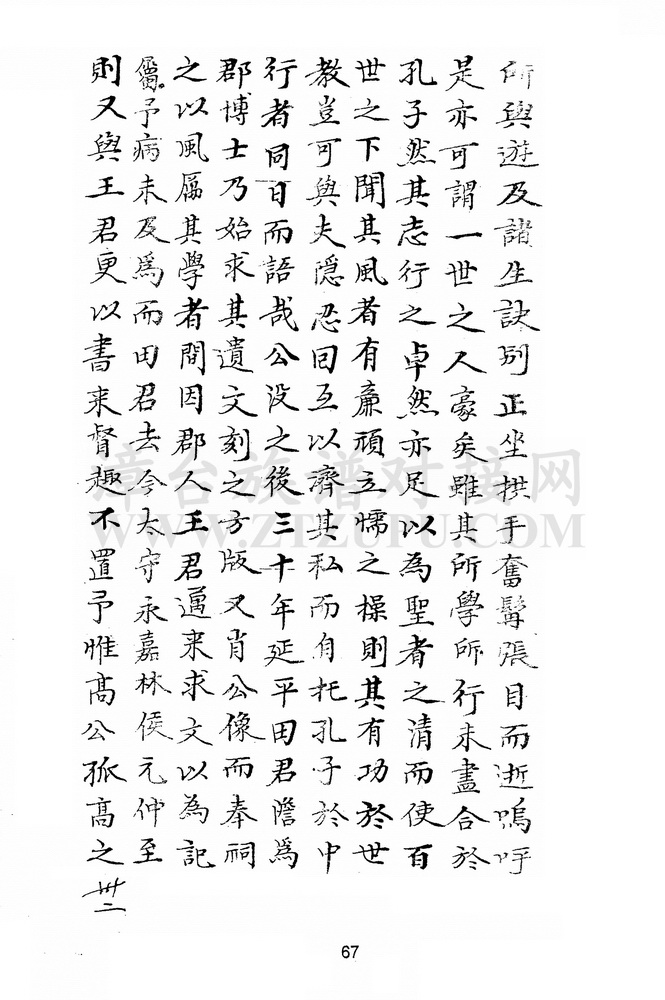 所與遊及諸生訣別正坐拱手奮髯張目而逝嗚呼
是亦可謂一世之人豪矣雖其所學所行未盡合於
孔子然其志行之卓然亦足以為聖者之清而使百
世之下聞其風者有亷頑立懦之操則其有功於世
教豈可與夫隱忍回互以濟其私而自托孔子於中
行者同日而語哉公沒之後三十年延平田君澹爲
郡博士乃始求其遺文刻之方版又肖公像而奉祠
之以風厲其學者間因郡人王君遇来求文以為記
屬予病未及爲而田君去今太守永嘉林侯元仲至
則又與王君更以書来督趣不置予惟高公孤高之
卅二
67
漳台族谱对接网
WWW.ZTZUPU.COM